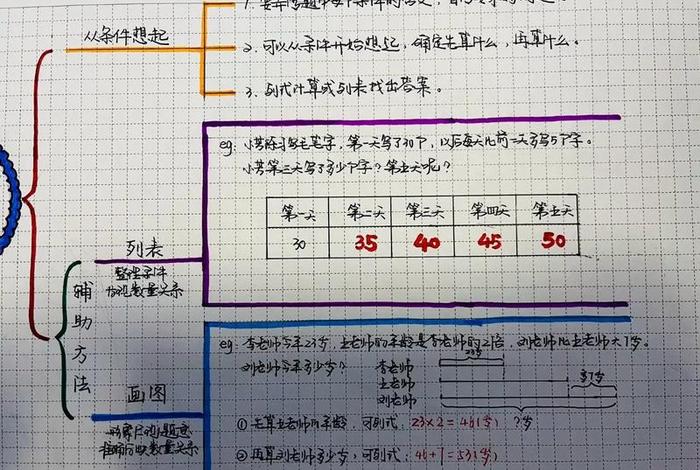 从条件想起
2. 可以从条件开始想起，确定先算什么，再算什么。
3. 列式计算或列表找出答案。
eg: 小芳练习写毛笔字，第一天写了30个，以后每天比前一天多写5个字。
小芳第三天写了多少个字？第五天呢？
第一天 第二天 第三天 第四天 第五天
30 35 40 45 50
列表
整理条件
数量关系
辅助方法
eg: 李老师今年23岁，王老师的年龄是李老师的2倍，刘老师比王老师大7岁。
刘老师今年多少岁？
李老师
23岁
王老师
大7岁
刘老师
?岁
画图
①先算王老师的年龄，可列式：23×2=46(岁)
②再算刘老师多少岁，可列式：46+7=53(岁)
数量关系